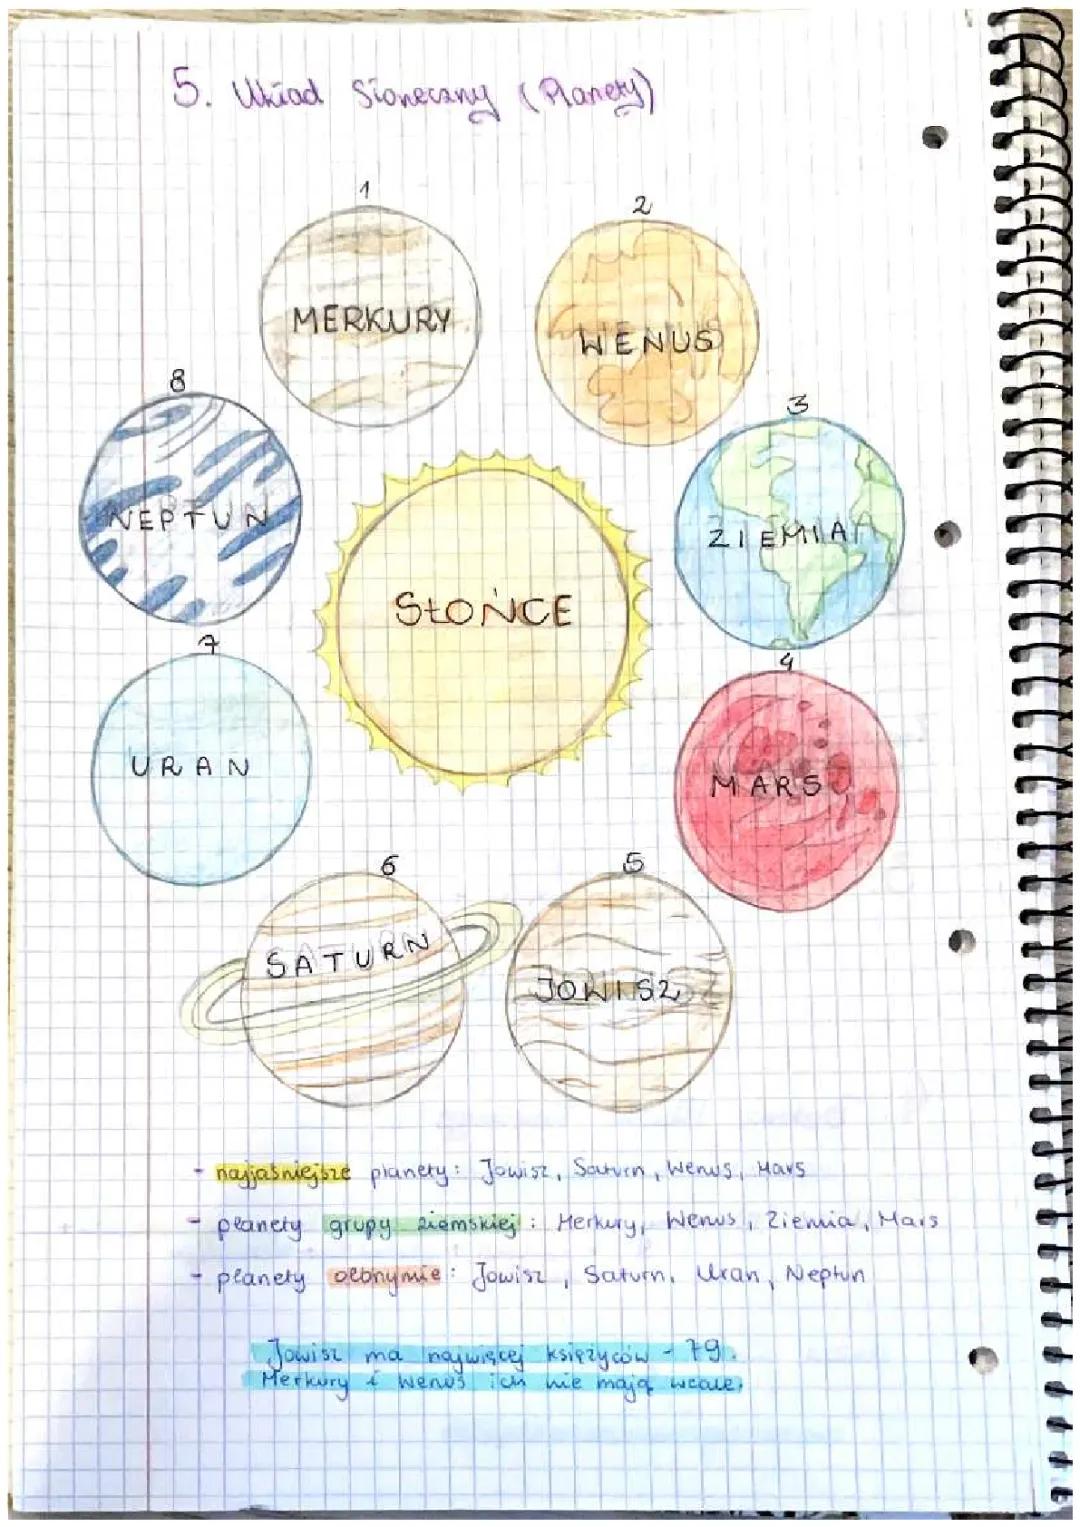 5. Układ Słoneczny (Planety)
1
MERKURY
2
WENUS
8
NEPTUN
3
ZIEMIA
SŁOŃCE
7
URAN
4
MARS
6
SATURN
5
JOWISZ
- najjaśniejsze planety: Jowisz, Saturn, Wenus, Mars
- planety grupy ziemskiej: Merkury, Wenus, Ziemia, Mars
- planety olbrzymie: Jowisz, Saturn, Uran, Neptun
Jowisz ma najwięcej księżyców - 79.
Merkury i Wenus ich nie mają wcale.